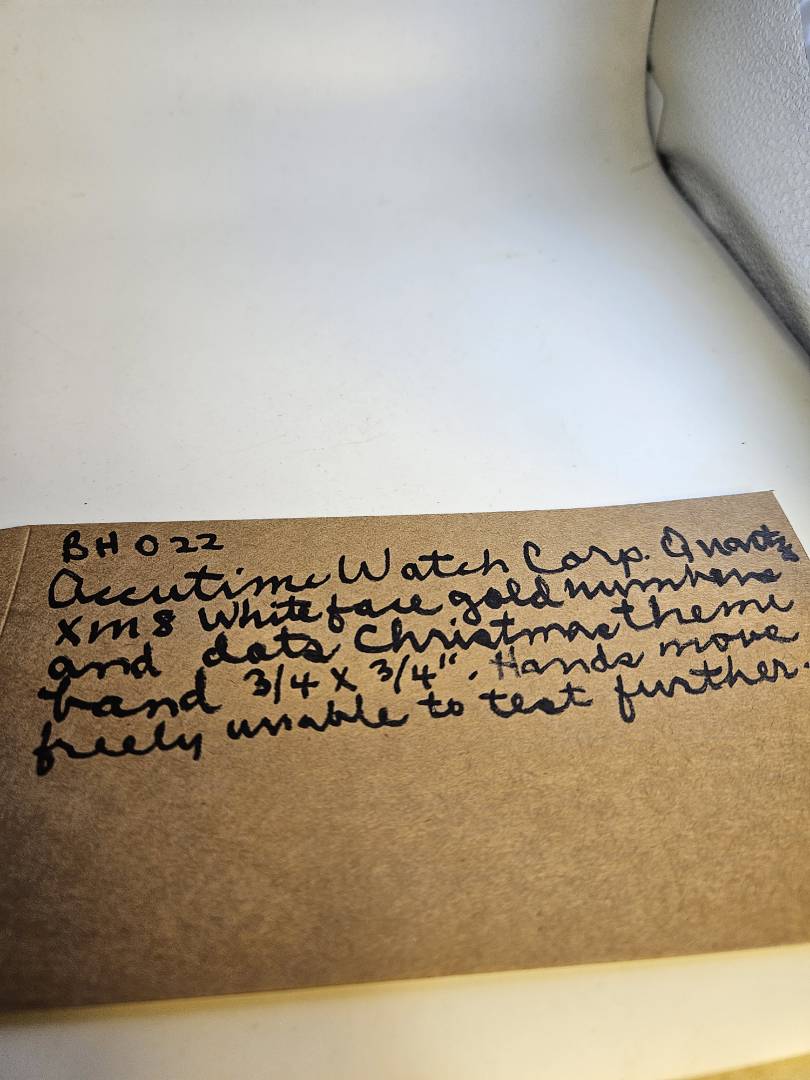 BH 022
Accutime Watch Corp. Quartz
XM8 White face gold numbers
and dots Christmas theme
band 3/4 x 3/4". Hands move
freely unable to test further.